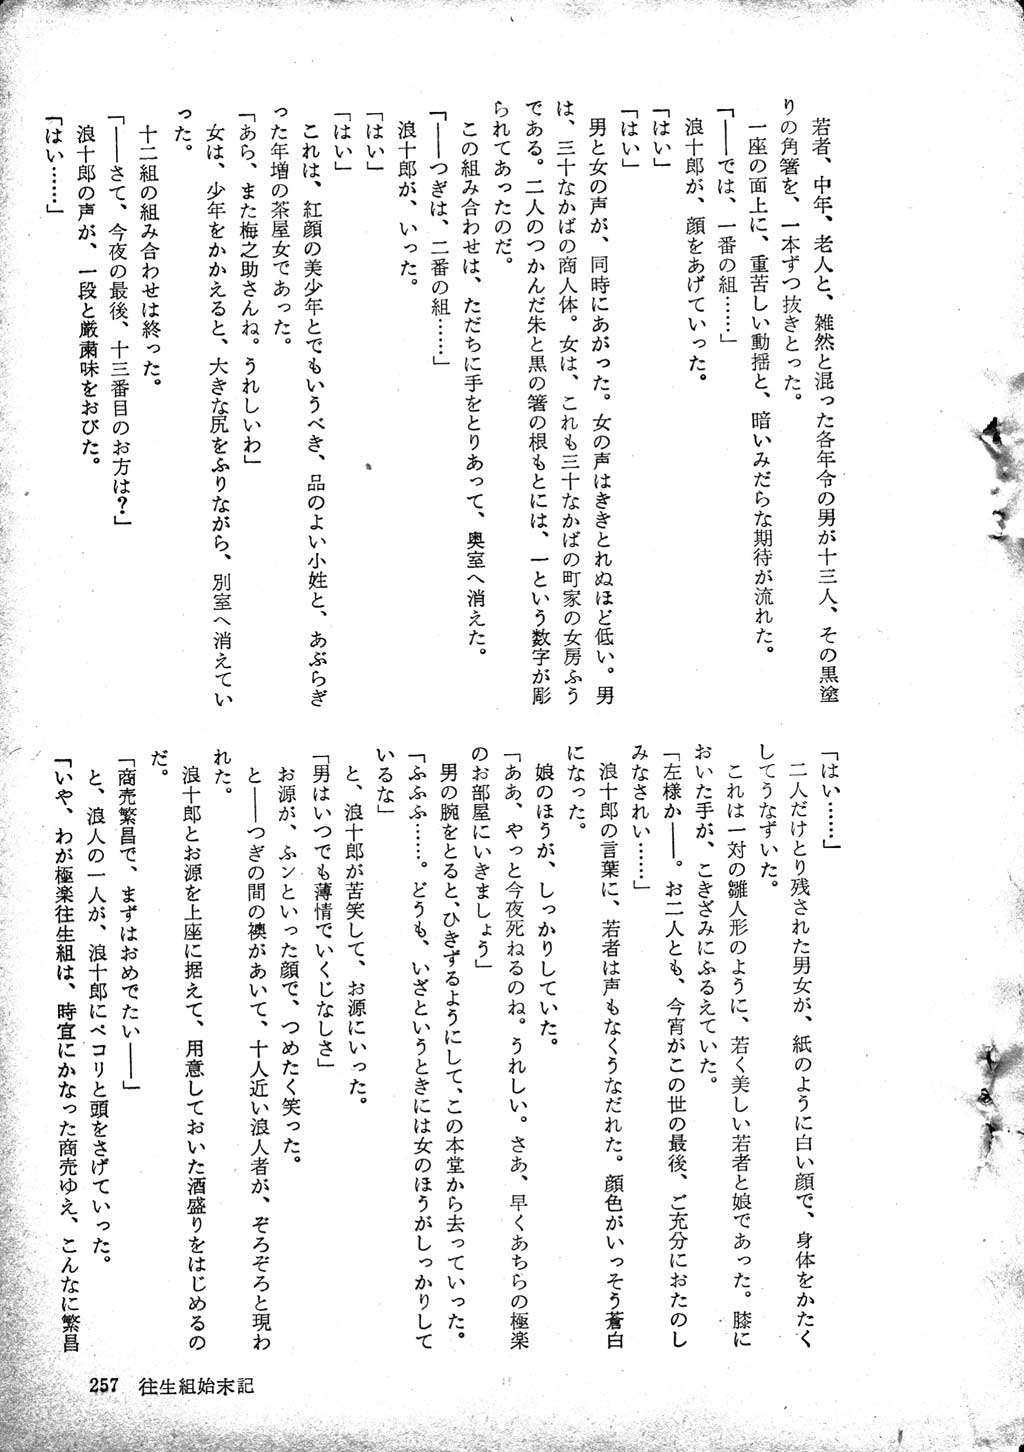 若者、中年、老人と、雑然と混った各年令の男が十三人、その黒塗
りの角箸を、一本ずつ抜きとった。
一座の面上に、重苦しい動揺と、暗いみだらな期待が流れた。
「――では、一番の組……」
浪十郎が、顔をあげていった。
「はい」
「はい」
男と女の声が、同時にあがった。女の声はききとれぬほど低い。男
は、三十なかばの商人体。女は、これも三十なかばの町家の女房ふう
である。二人のつかんだ朱と黒の箸の根もとには、一という数字が彫
られてあったのだ。
この組み合わせは、ただちに手をとりあって、奥室へ消えた。
「――つぎは、二番の組……」
浪十郎が、いった。
「はい」
「はい」
これは、紅顔の美少年とでもいうべき、品のよい小姓と、あぶらぎ
った年増の茶屋女であった。
「あら、また梅之助さんね。うれしいわ」
女は、少年をかかえると、大きな尻をふりながら、別室へ消えてい
った。
十二組の組み合わせは終った。
「――さて、今夜の最後、十三番目のお方は？」
浪十郎の声が、一段と厳粛味をおびた。
「はい……」
「はい……」
二人だけとり残された男女が、紙のように白い顔で、身体をかたく
してうなずいた。
これは一対の雛人形のように、若く美しい若者と娘であった。膝に
おいた手が、こきざみにふるえていた。
「左様か――。お二人とも、今宵がこの世の最後、ご充分におたのし
みなされい……」
浪十郎の言葉に、若者は声もなくうなだれた。顔色がいっそう蒼白
になった。
娘のほうが、しっかりしていた。
「ああ、やっと今夜死ねるのね。うれしい。さあ、早くあちらの極楽
のお部屋にいきましょう」
男の腕をとると、ひきずるようにして、この本堂から去っていった。
「ふふふ……。どうも、いざというときには女のほうがしっかりして
いるな」
と、浪十郎が苦笑して、お源にいった。
「男はいつでも薄情でいくじなしさ」
お源が、ふンといった顔で、つめたく笑った。
と――つぎの間の襖があいて、十人近い浪人者が、ぞろぞろと現わ
れた。
浪十郎とお源を上座に据えて、用意しておいた酒盛りをはじめるの
だ。
「商売繁昌で、まずはおめでたい――」
と、浪人の一人が、浪十郎にペコリと頭をさげていった。
「いや、わが極楽往生組は、時宜にかなった商売ゆえ、こんなに繁昌
257 往生組始末記